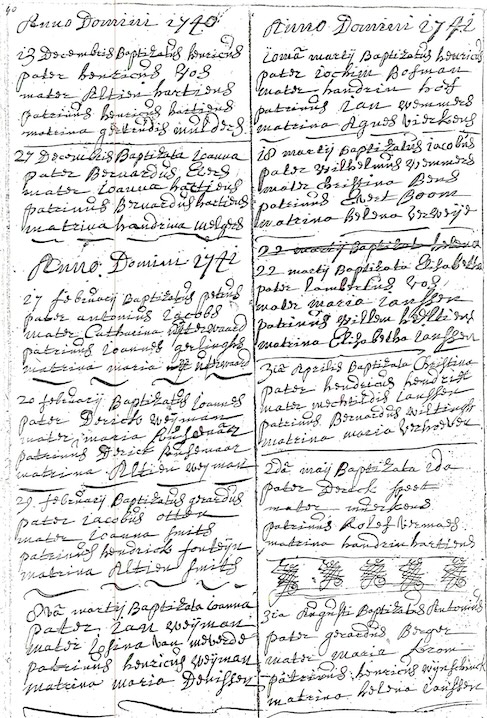 90
Anno Domini 1740
13 Decembris Baptizatus henricus
pater henricus Vos
mater Altien hartiens
patrinus henricus hartiens
matrina gertrudis mulders
27 Decembris Baptizata Joanna
pater Bernardus Evers
mater Joanna hartiens
patrinus Bernardus hartiens
matrina handrina welgers
Anno Domini 1741
27 februarij Baptizatus petrus
pater antonius Jacobs
mater Catharina uiterwaard
patrinus Joannes gerlinghs
matrina maria uiterwaard
20 februarij Baptizatus Joannes
pater Derick weijman
mater maria
patrinus Derick
matrina Altien weijman
29 februarij Baptizatus gerardus
pater Jacobus otten
mater Joanna smits
patrinus hendrick fonteijn
matrina Altien smits
8va martij Baptizata Joanna
pater Jan weijman
mater Josina van meverde
patrinus henricus weijman
matrina maria Derissen
Anno Domini 1741
martij Baptizatus henricus
pater Jochim Bosman
mater handrin hoss
patrinus Jan wemmers
matrina Agnes vierkens
18 martij Baptizatus Jacobus
pater wilhelmus wemmers
mater Christina Bens
patrinus Evert Boom
matrina helena verweije
22 martij Baptizata helena
22 martij Baptizata Elisabetha
pater lambertus vos
mater maria Janssen
patrinus willem hartiens
matrina Elisabetha Janssen
3ia Aprilis Baptizata Christina
pater hendricus hendrix
mater mechtildis Janssen
patrinus Bernardus wiltingh
matrina maria verhoeven
2da maij Baptizata Ida
pater Derick speet
mater
patrinus Rolef vermaes
matrina handrin hartiens
3ia Augusti Baptizatus Antonius
pater gerardus Berger
mater maria
patrinus henricus wijnschinck
matrina helena Janssen